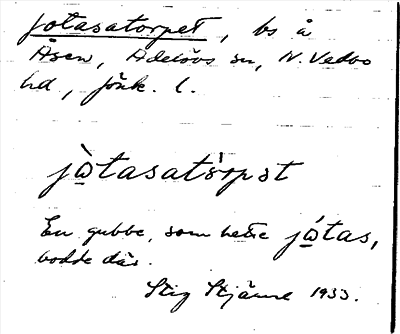 Jotasatorpet, bs å
Åsen, Adelövs sn, N. Vedbo
hd, Jönk. l.
jὼtasatὸrpət
En gubbe, som hette jώtas,
bodde där.
Stig Stjärne 1933.